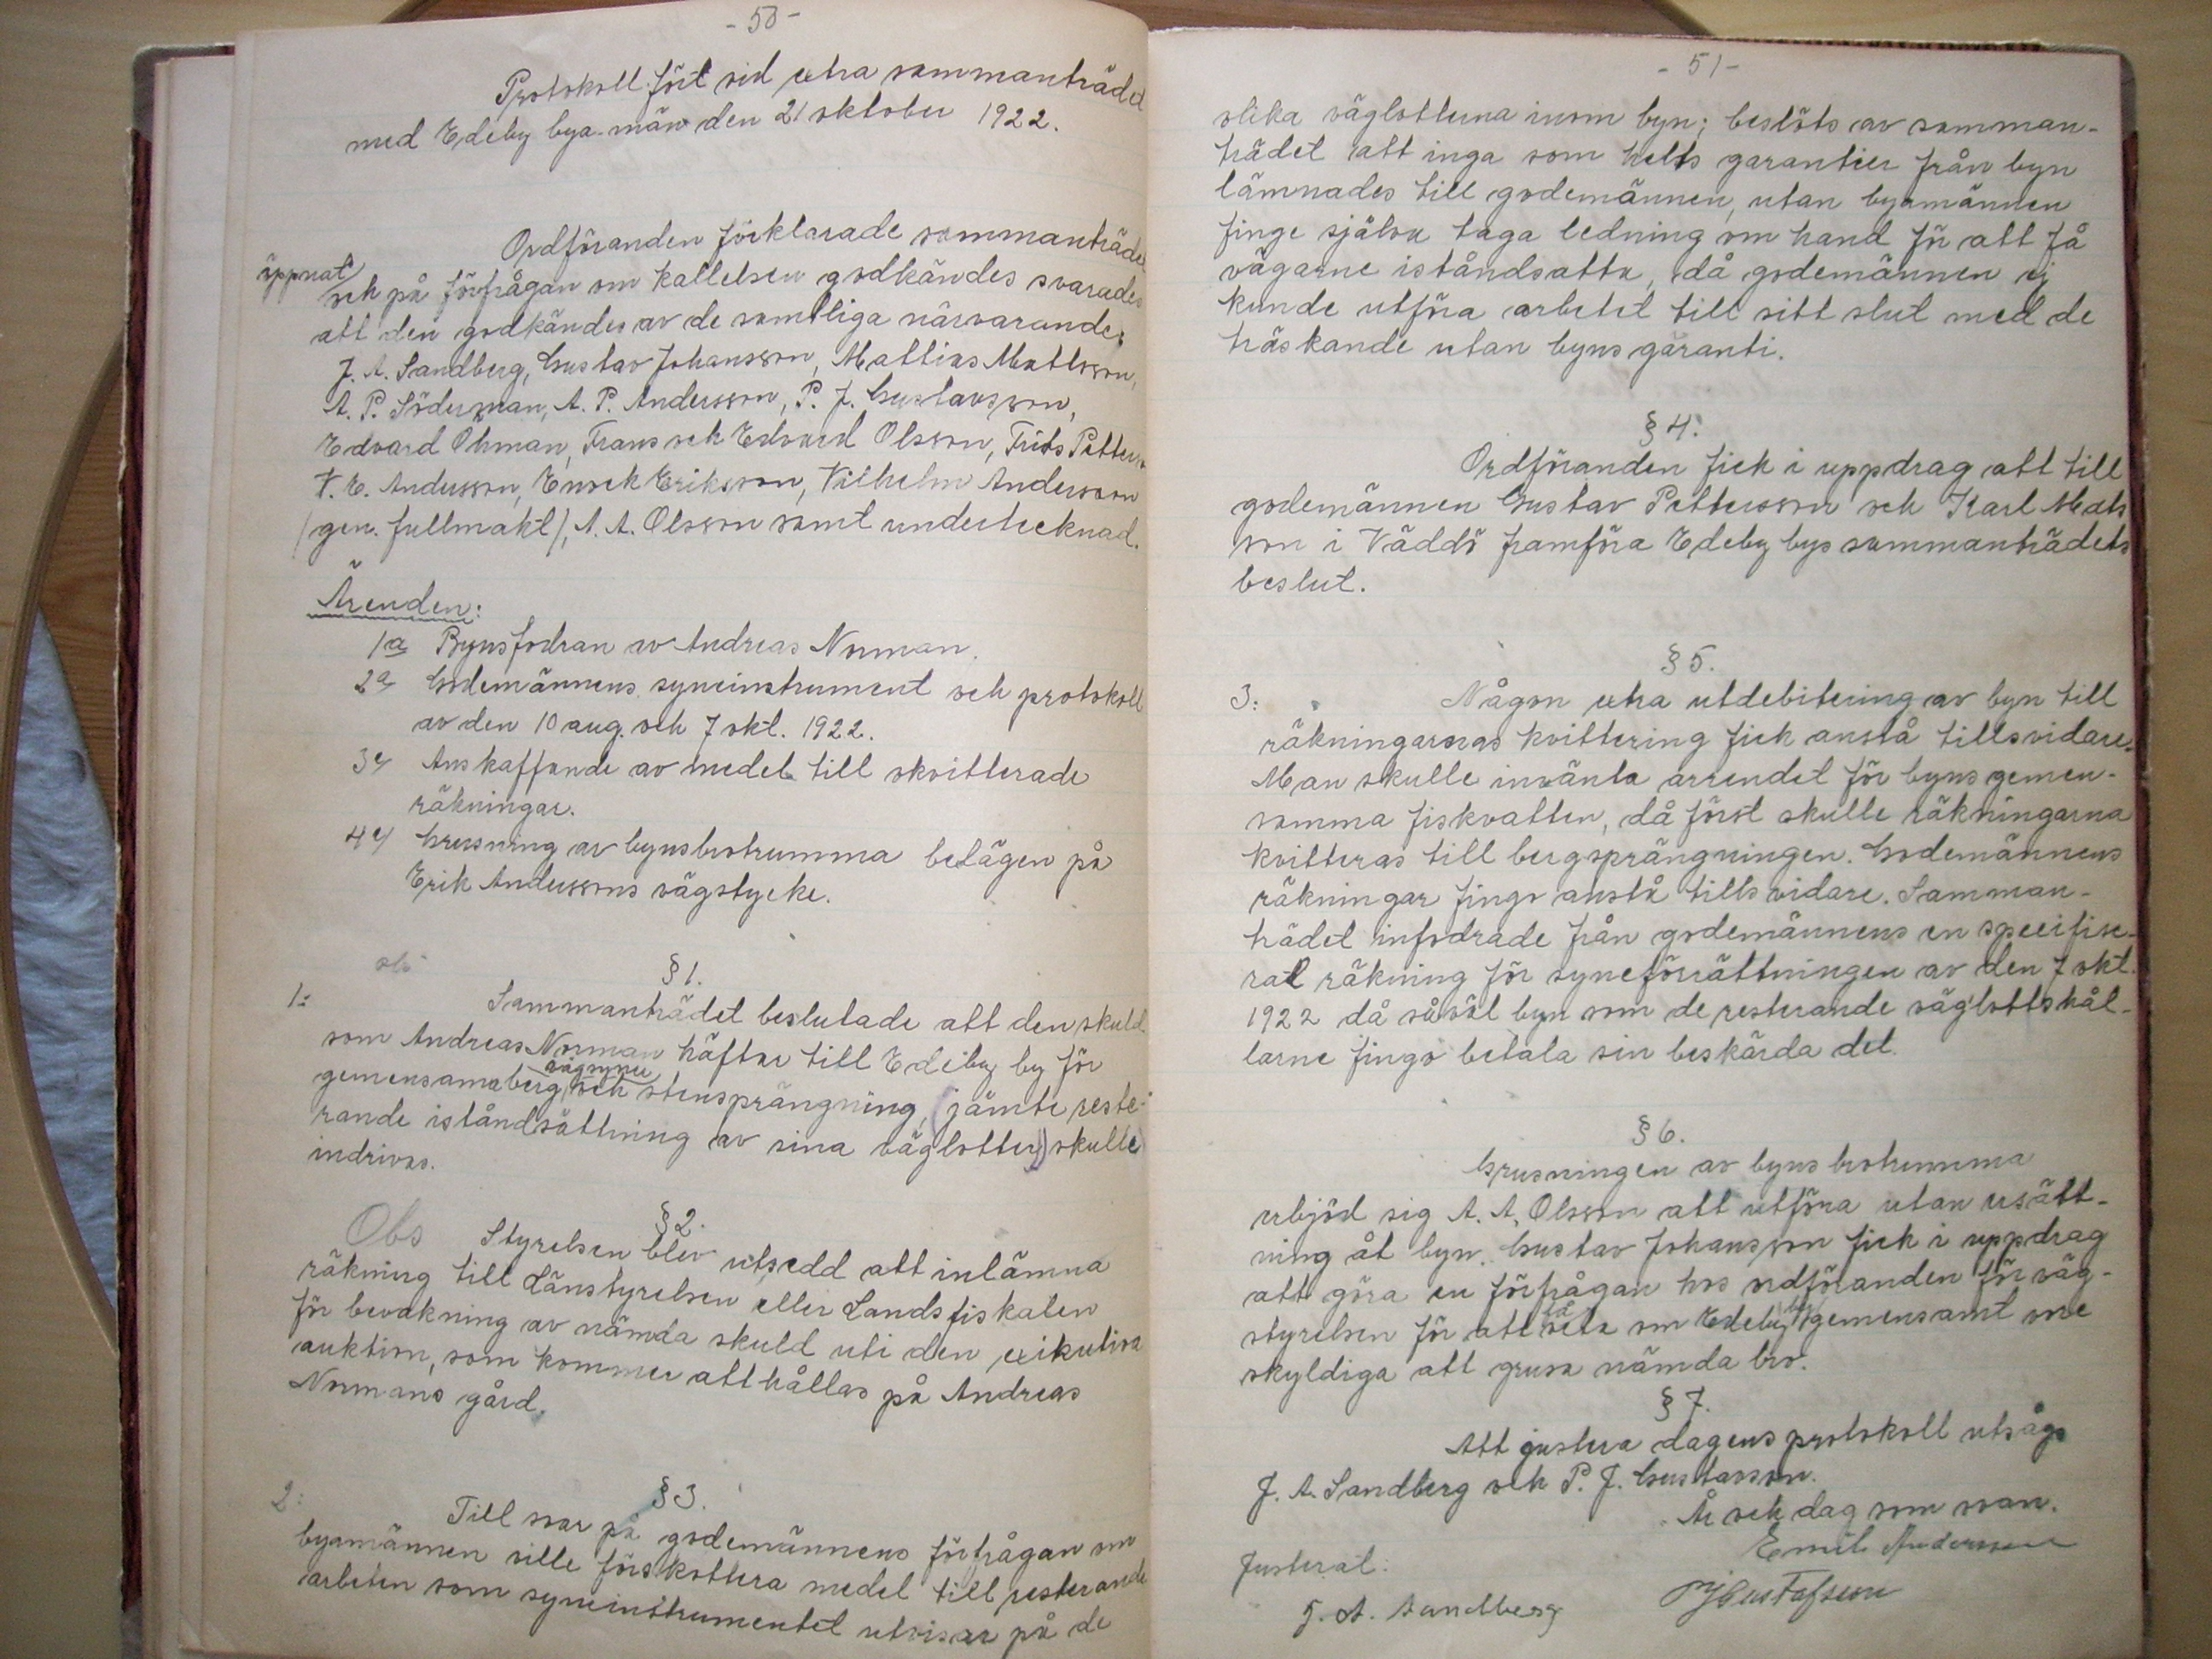 - 50 -
Protokoll fört vid extra sammanträde
med Edeby bya-män den 21 oktober 1922.
Ordföranden förklarade sammanträdet
öppnat
och på förfrågan om kallelsen godkändes svarades
att den godkändes av de samtliga närvarande;
J. A. Sandberg, Gustav Johansson, Mattias Mattsson,
A. P. Söderman, A. P. Andersson, P. J. Gustavsson,
Edvard Öhman, Frans och Edvard Olsson, Frits Petters
F. E. Andersson, Enock Eriksson, Vilhelm Andersson
(gen. fullmakt), A. A. Olsson samt undertecknad.
Ärenden:
1a Byns fodran av Andreas Norman.
2a Godemännens syneinstrument och protokoll
av den 10 aug. och 7 okt. 1922.
3e Anskaffande av medel till okvitterade
räkningar.
4e Grusning av byns brotrumma belägen på
Erik Anderssons vägstycke.
obs
§ 1.
1: Sammanträdet beslutade att den skuld
som Andreas Norman häftar till Edeby by för
vägsyner
gemensama berg och stensprängning, (jämte reste-
rande iståndsättning av sina väglotter) skulle
indrivas.
§ 2.
Obs Styrelsen blev utsedd att inlämna
räkning till Länstyrelsen eller Landsfiskalen
för bevakning av nämda skuld uti den exikutiva
auktion, som kommer att hållas på Andreas
Normans gård.
§ 3.
2: Till svar på godemännens förfrågan om
byamännen ville förskottera medel till resterande
arbeten som syneinstrumentet utvisar på de
- 51 -
olika väglotterna inom byn; beslöts av samman-
trädet att inga som helts garantier från byn
lämnades till godemännen, utan byamännen
finge själva taga ledning om hand för att få
vägarne iståndsatta, då godemännen ej
kunde utföra arbetet till sitt slut med de
träskande utan byns garanti.
§ 4.
Ordföranden fick i uppdrag att till
godemännen Gustav Pettersson och Karl Mats
son i Väddö framföra Edeby bys sammanträdets
beslut.
§ 5.
3: Någon extra utdebitering av byn till
räkningarnas kvittering fick anstå tillsvidare.
Man skulle invänta arrendet för byns gemen-
samma fiskvatten, då först skulle räkningarna
kvitteras till bergsprängningen. Godemännens
räkningar fingo anstå tills vidare. Samman-
trädet infodrade från godemännens en specifise-
rat räkning för syneförrättningen av den 7 okt.
1922 då såväl byn som de resterande väglottshål-
larne fingo betala sin beskärda del.
§ 6.
Grusningen av byns brotrumma
erbjöd sig A. A. Olsson att utföra utan ersätt-
ning åt byn. Gustav Johansson fick i uppdrag
att göra en förfrågan hos ordföranden för väg-
styrelsen för att veta om Edeby by gemensamt vore
skyldiga att grusa nämda bro.
§ 7.
Att justera dagens protokoll utsågs
J. A. Sandberg och P. J. Gustavsson.
År och dag som ovan.
Emil Andersson
Justerat:
J. A. Sandberg PJGustafsson